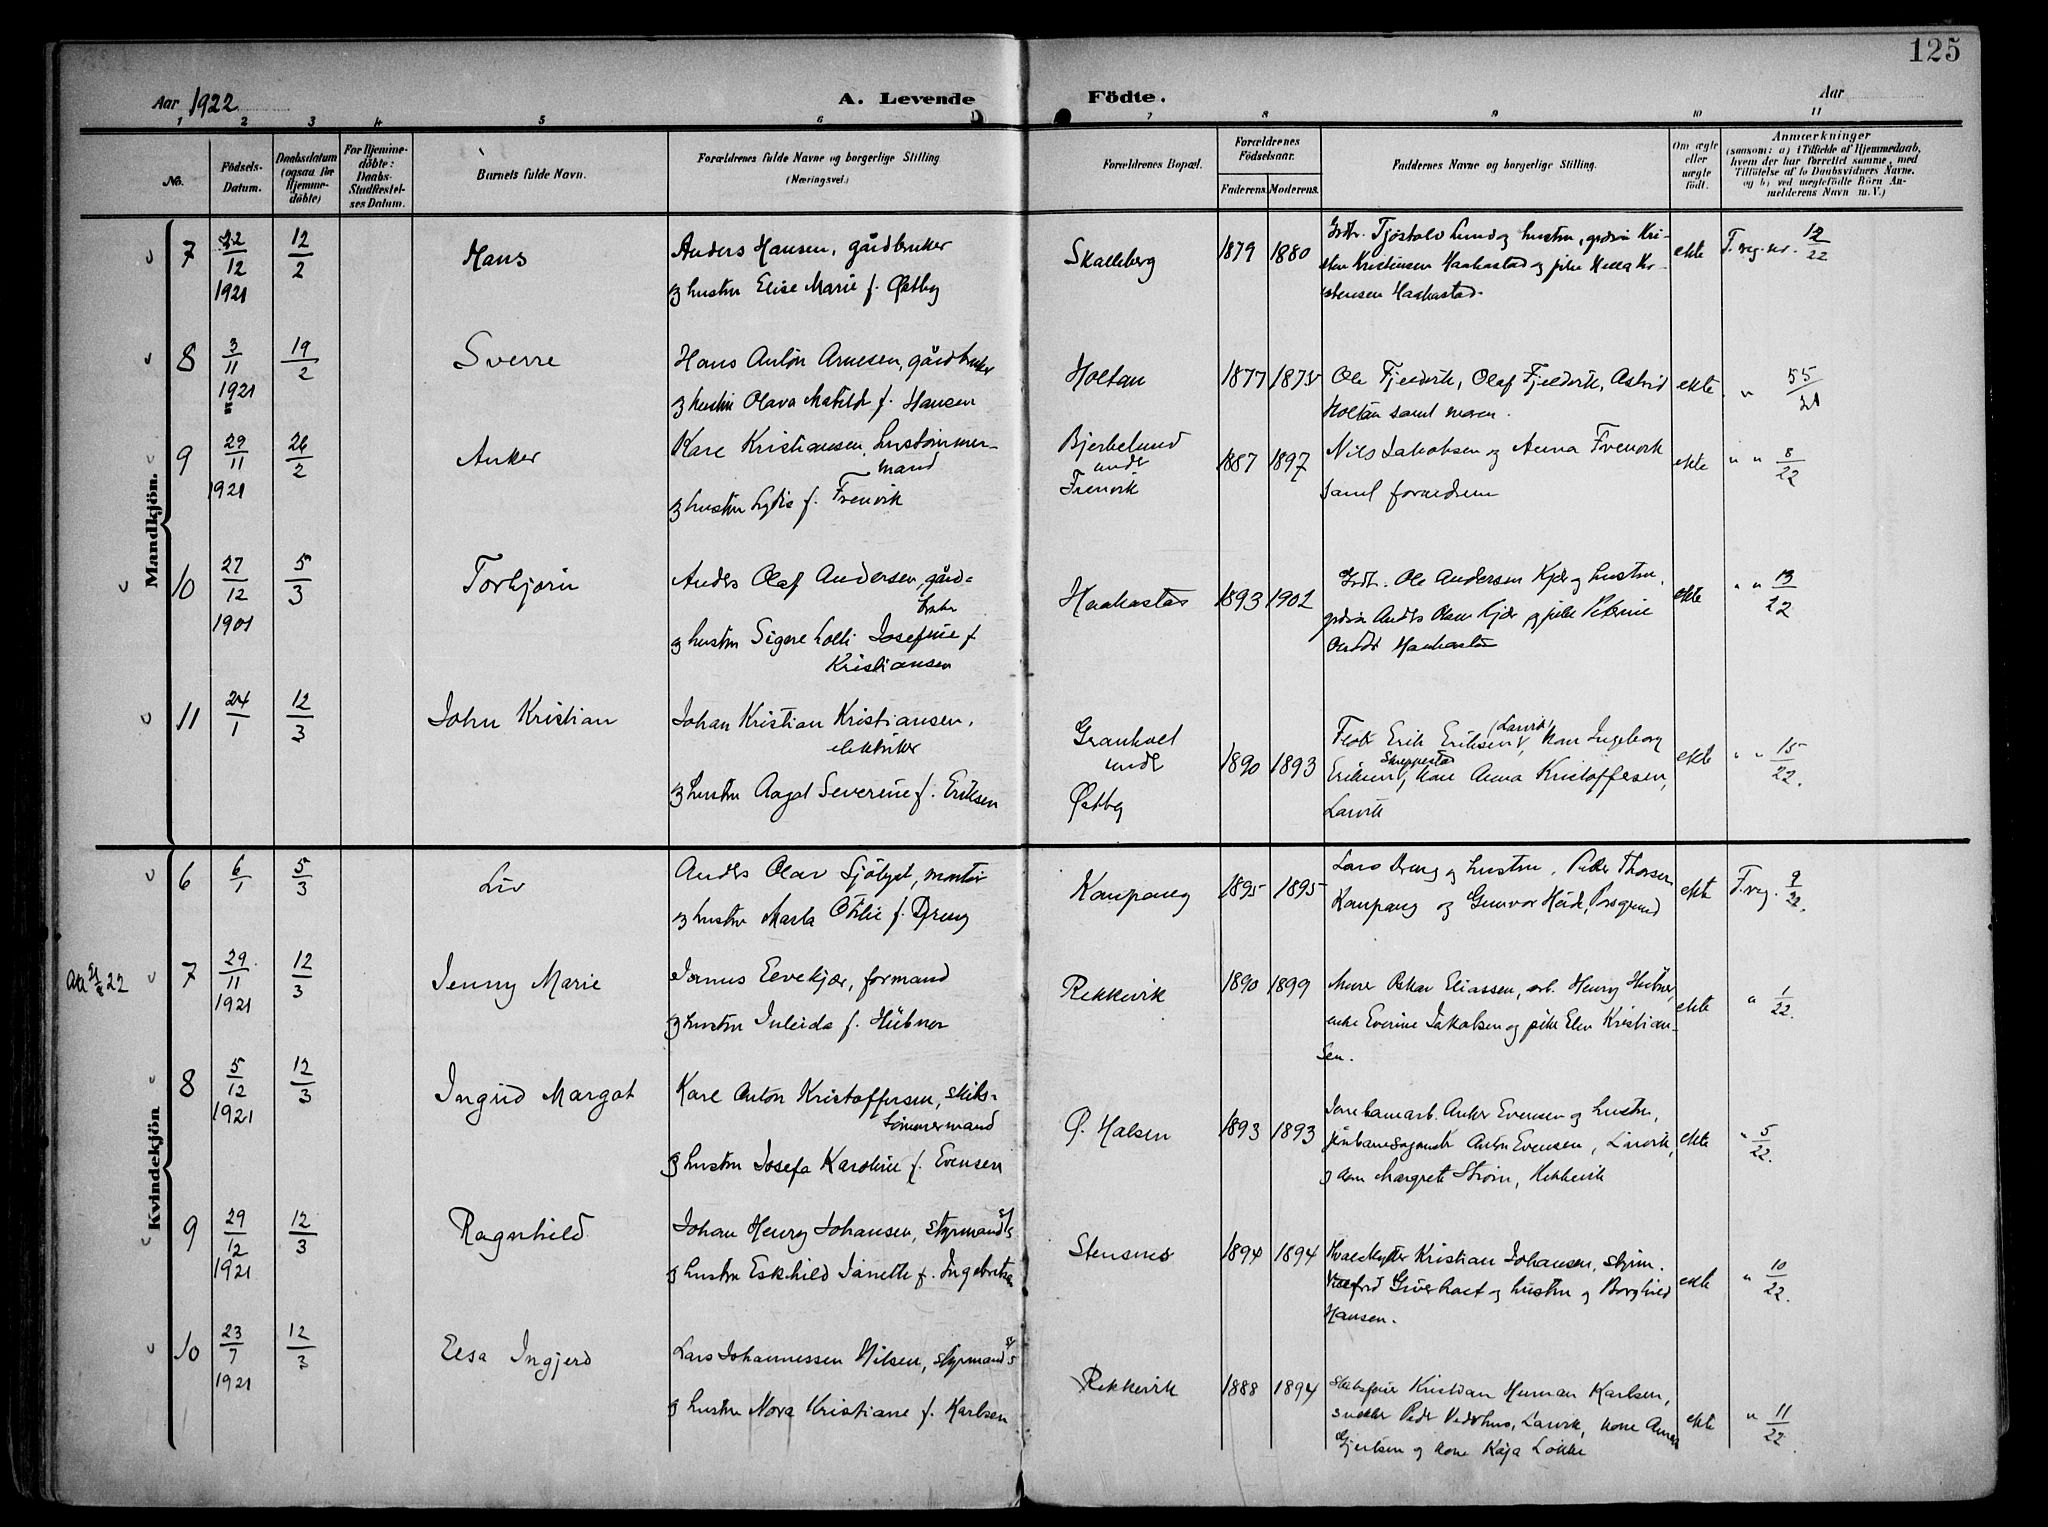 125
Aar 1922
A. Levende Födte.
Aar
1 2 3 4 5 6 7 8 9 10 11
No.
Födsels-Datum.
Daabsdatum (ogsaa for Hjemme-döbte)
For Hjemme-döbte: Daabs-Stadfæstel-ses Datum.
Barnets fulde Navn.
Forældrenes fulde Navne og borgerlige Stilling (Næringsvei.)
Forældrenes Bopæl.
Forældrenes Födselsaar.
Faderens. Moderens.
Faddernes Navne og borgerlige Stilling.
Om ægte eller uægte födt.
Anmærkninger
(saasom: a) i Tilfælde af Hjemmedaab,
hvem der har forrettet samme, med
Tilföielse af to Daabsvidners Navne.
og b) ved uægtefödte Börn An-
melderens Navn m. V.)
Mandkjön.
7 22/12 1921 12/2 Hans
Anders Hansen, gårdbruker
og hustru Elise Marie f. Østby
Skalleberg 1879 1880
Tjøstolv Lund og hustru,
Kristensen Haakastad og pike
Haakastad.
ekte F. reg. nr. 12/22
8 3/11 1921 19/2 Sverre
Hans Anton Arnesen, gårdbruker
og hustru Olava Matilde f. Hansen
Holtan 1877 1875
Ole Fjeldvik, Olaf Fjeldvik, Astrid
Holtan samt moren.
ekte " 55/21
9 29/11 1921 26/2 Anker
Karl Kristiansen, hustømmer-
mand
og hustru Lydia f. Frenvik
Bjerkelund
under
Frenvik
1887 1897
Nils Jakobsen og Anna Frenvik
samt forældrene
ekte " " 8/22
10 27/12 1901 5/3 Torbjørn
Anders Olaf Andersen, gård-
bruker
og hustru Josefine f.
Kristiansen
Haakastad 1893 1902
Ole Andersen Kjær og hustru,
Anders Olsen Kjær og pike Petrine
Haakastad
ekte " " 13/22
11 24/1 12/3 John Kristian
Johan Kristian Kristiansen,
elektriker
og hustru Aagot Severine f. Eriksen
Granholt
under
Østby
1890 1893
Erik Eriksen, (Larvik) kone Ingeborg
Eriksen, kone Anna Kristoffersen,
Larvik
ekte " " 15/22.
Kvindekjön
6 6/1 5/3 Liv
Anders Olav Sjölyst, montør
og hustru Marta Otilie f. Dreng
Kaupang 1895 1895
Lars Dreng og hustru, Peder Thorsen
Kaupang og Gunvor Heide, Porsgrund
ekte F. reg. 9/22.
22
7 29/11 1921 12/3 Jenny Marie
Janus Evekjær, formand
og hustru f. Hübner
Rekkevik 1890 1899
Murer Oskar Eliassen, arb. Henry Hübner,
enke Everine Jakobsen og pike Elen Kristian-
sen.
ekte " 1/22.
8 5/12 1921 12/3 Ingrid Margot
Karl Anton Kristoffersen, skibs-
tömmermand
og hustru Josefa Karoline f. Evensen
Ø. Halsen 1893 1893
Jernbanearb. Anker Evensen og hustru,
Anton Evensen, Larvik,
og kone Margrete Strøm, Rekkevik
ekte " 5/22.
9 29/12 1921 12/3 Ragnhild
Johan Henry Johansen, styrmand
og hustru Eskhild Janette f. Ingebretsen
Stensnes 1894 1894
Hvalskytter Kristian Johansen, styrm.
og hustru og Borghild
Hansen.
ekte " 10/22.
10 23/7 1921 12/3 Elsa Ingjerd
Lars Johannessen Nilsen, styrmand
og hustru Nora Kristiane f. Karlsen
Rekkevik 1888 1894
Skibsfører Kristian Herman Karlsen,
snekker Peder Vedehus, Larvik, kone Anna
Gjertsen og kone Kaja Løkke
ekte " 11/22